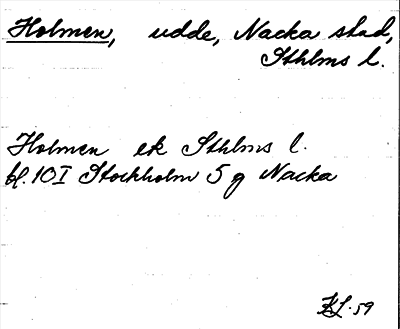 Holmen, udde, Nacka stad,
Sthlms l.
Holmen ek Sthlms l.
bl. 10 I Stockholm 5 g Nacka
KL. 59